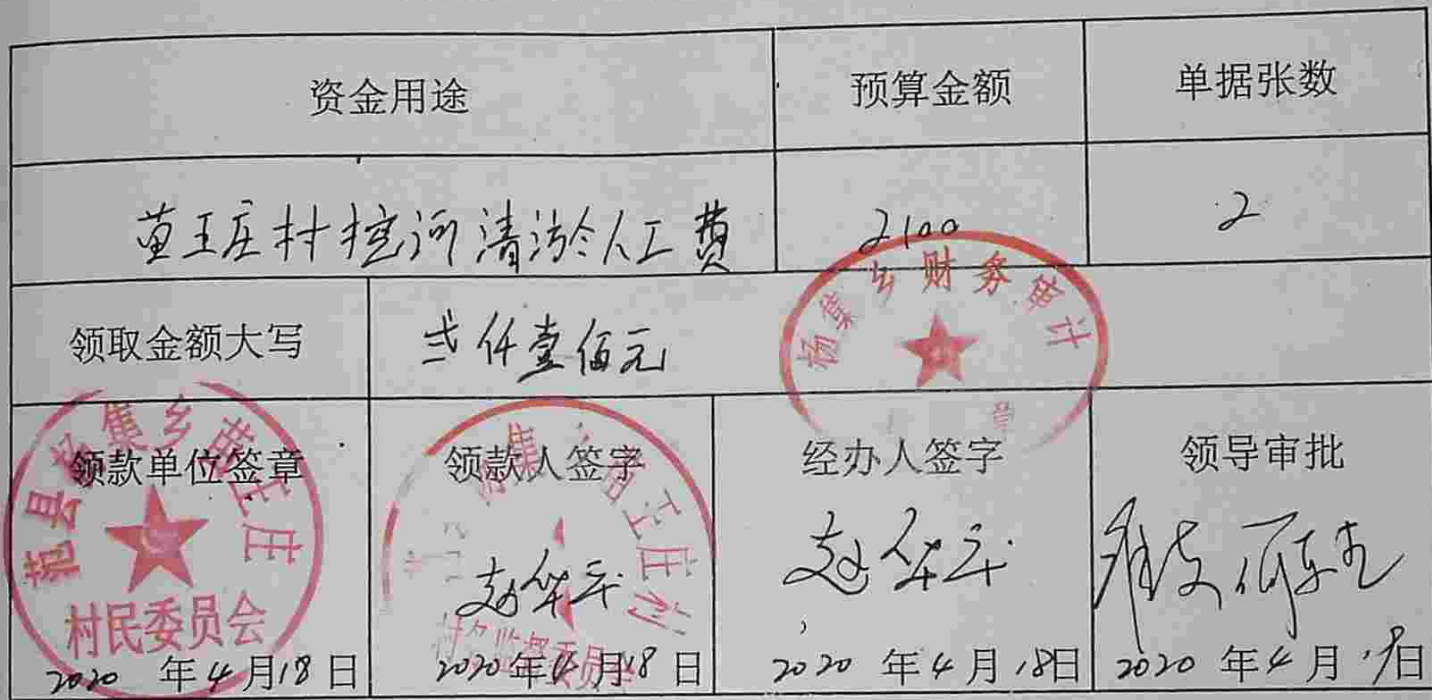 资金用途 预算金额 单据张数
苗王庄村挖河清淤人工费 2100 2
领取金额大写 弍仟壹佰元
杨集乡财务审计
章
领款单位签章 领款人签字 经办人签字 领导审批
范县杨集乡苗王庄
村民委员会
集 苗王庄村
村务监督委员会
赵华平 赵华平
2020年4月18日 2020年4月18日 2020年4月18日 2020年4月 日